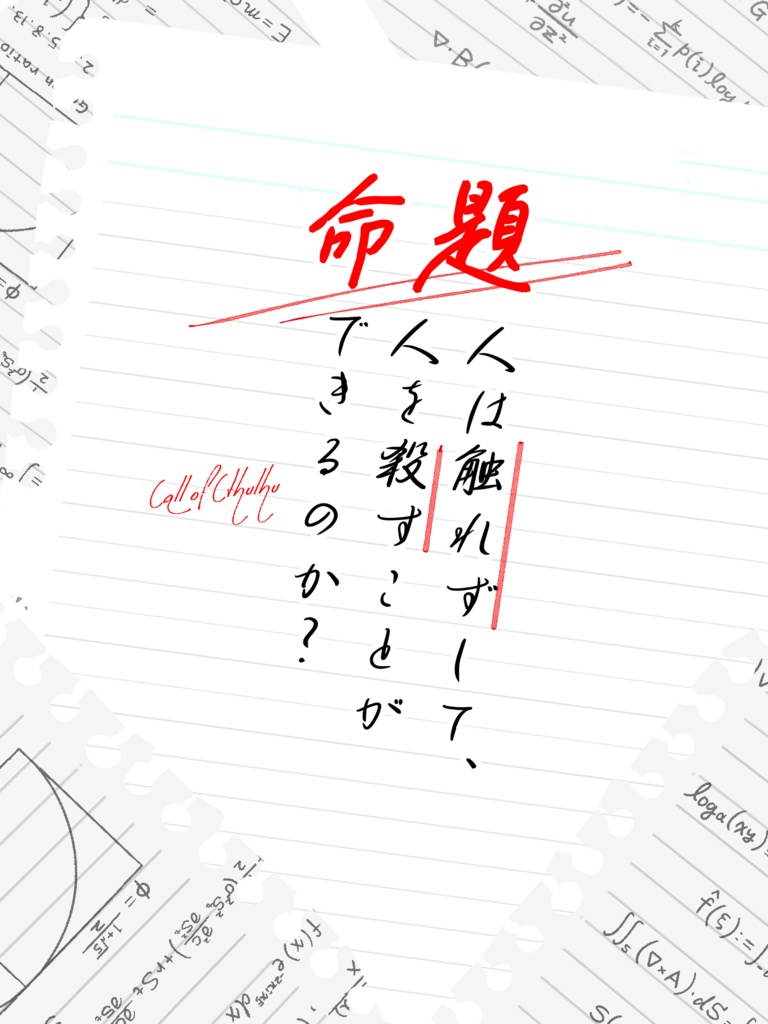 命題
人は触れずして、
人を殺すことが
できるのか?
Call of Cthulhu
E=m
∇·B(
∂²u
∂z²
k
Σ p(i)log
i=1
loga(xy)
f̂(ξ):=∫
∬s(∇×A)·dS
S(
φ = 1+√5
2
f(x)e
dx